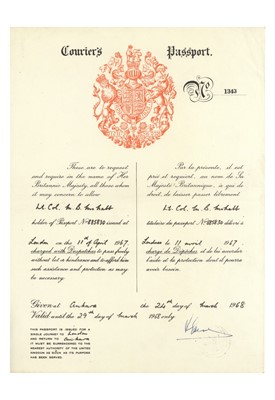 Courier's Passport.
No 1343
These are to request
and require in the name of Her
Britannic Majesty, all those whom
it may concern to allow
Lt Col.
holder of Passport No issued at
London on the 11th of April 1967
charged with Despatches to pass freely
without let or hindrance and to afford him
such assistance and protection as may
be necessary.
Par la présente, il est
prié et requis, au nom de Sa
Majesté Britannique, à qui
de droit, de laisser passer librement
Lt Col.
titulaire du passeport No délivré à
London le 11 avril 1967
chargé de Dépêches et de lui accorder
l'aide et la protection dont il pourra
avoir besoin.
Given at Ankara the 24th day of March 1968.
Valid until the 29th day of March 1968 only.
THIS PASSPORT IS ISSUED FOR A
SINGLE JOURNEY TO London
AND RETURN TO Ankara
IT MUST BE SURRENDERED TO THE
NEAREST AUTHORITY OF THE UNITED
KINGDOM AS SOON AS ITS PURPOSE
HAS BEEN SERVED